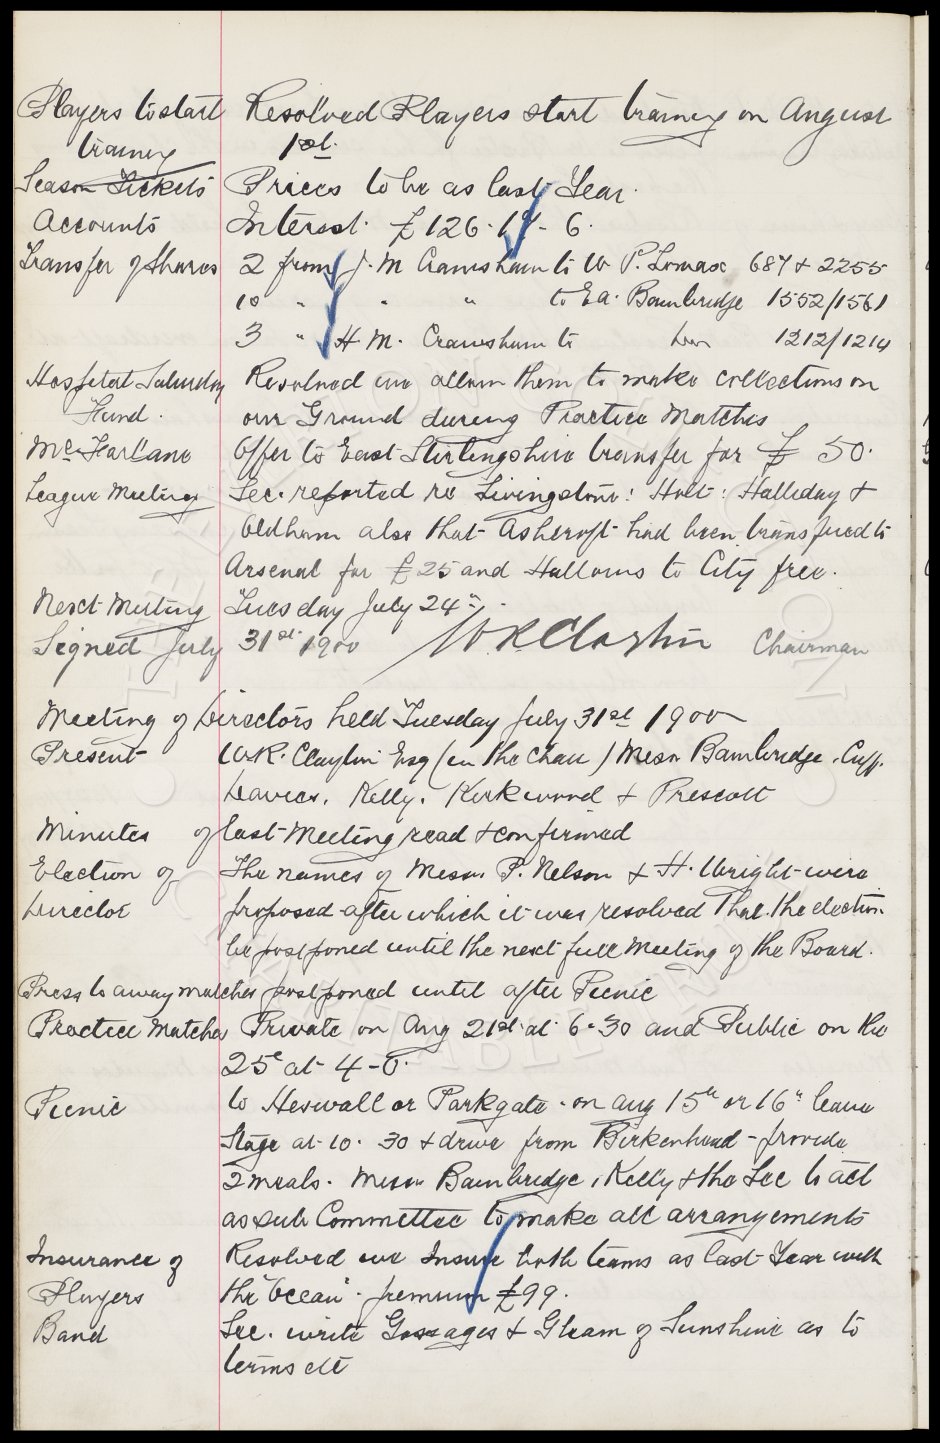 Players to start Resolved Players start training on August
training 1st.
Season Tickets Prices to be as last Year.
Accounts Interest. £126. - 6.
Transfer of Shares 2 from J. M Cramsham to W. P. Lomax 687 & 2255
10 " " " to Ed. Bainbridge 1552/1561
3 " H. M. Cramsham to him 1212/1214
Hospital Saturday Resolved we allow them to make collections on
Fund. our Ground during Practice Matches
McFarlane Offer to East Stirlingshire transfer for £50.
League Meeting Sec. reported re Livingstone: Holt: Halliday &
Oldham also that Ashcroft had been transfered to
Arsenal for £25 and Hallows to City free.
Next Meeting Tuesday July 24th.
Signed July 31st 1900 W. R. Clayton Chairman
Meeting of Directors held Tuesday July 31st 1900
Present W.R. Clayton Esq (in the Chair) Messrs Bainbridge, Cuff.
Davies, Kelly, Kirkwood & Prescott
Minutes of last Meeting read & confirmed
Election of The names of Messrs P. Nelson & H. Wright were
Director proposed after which it was resolved that the election
be postponed until the next full Meeting of the Board.
Press to away matches postponed until after Picnic
Practice Matches Private on Aug 21st at 6-30 and Public on the
25th at 4-0.
Picnic to Heswall or Parkgate. on Aug 15th or 16th leave
Stage at 10.30 & drive from Birkenhead - provide
2 meals. Messrs Bainbridge, Kelly & the Sec to act
as sub Committee to make all arrangements
Insurance of Resolved we Insure both teams as last Year with
Players the "Ocean". premium £99.
Band Sec. write Gossages & Gleam of Sunshine as to
terms etc